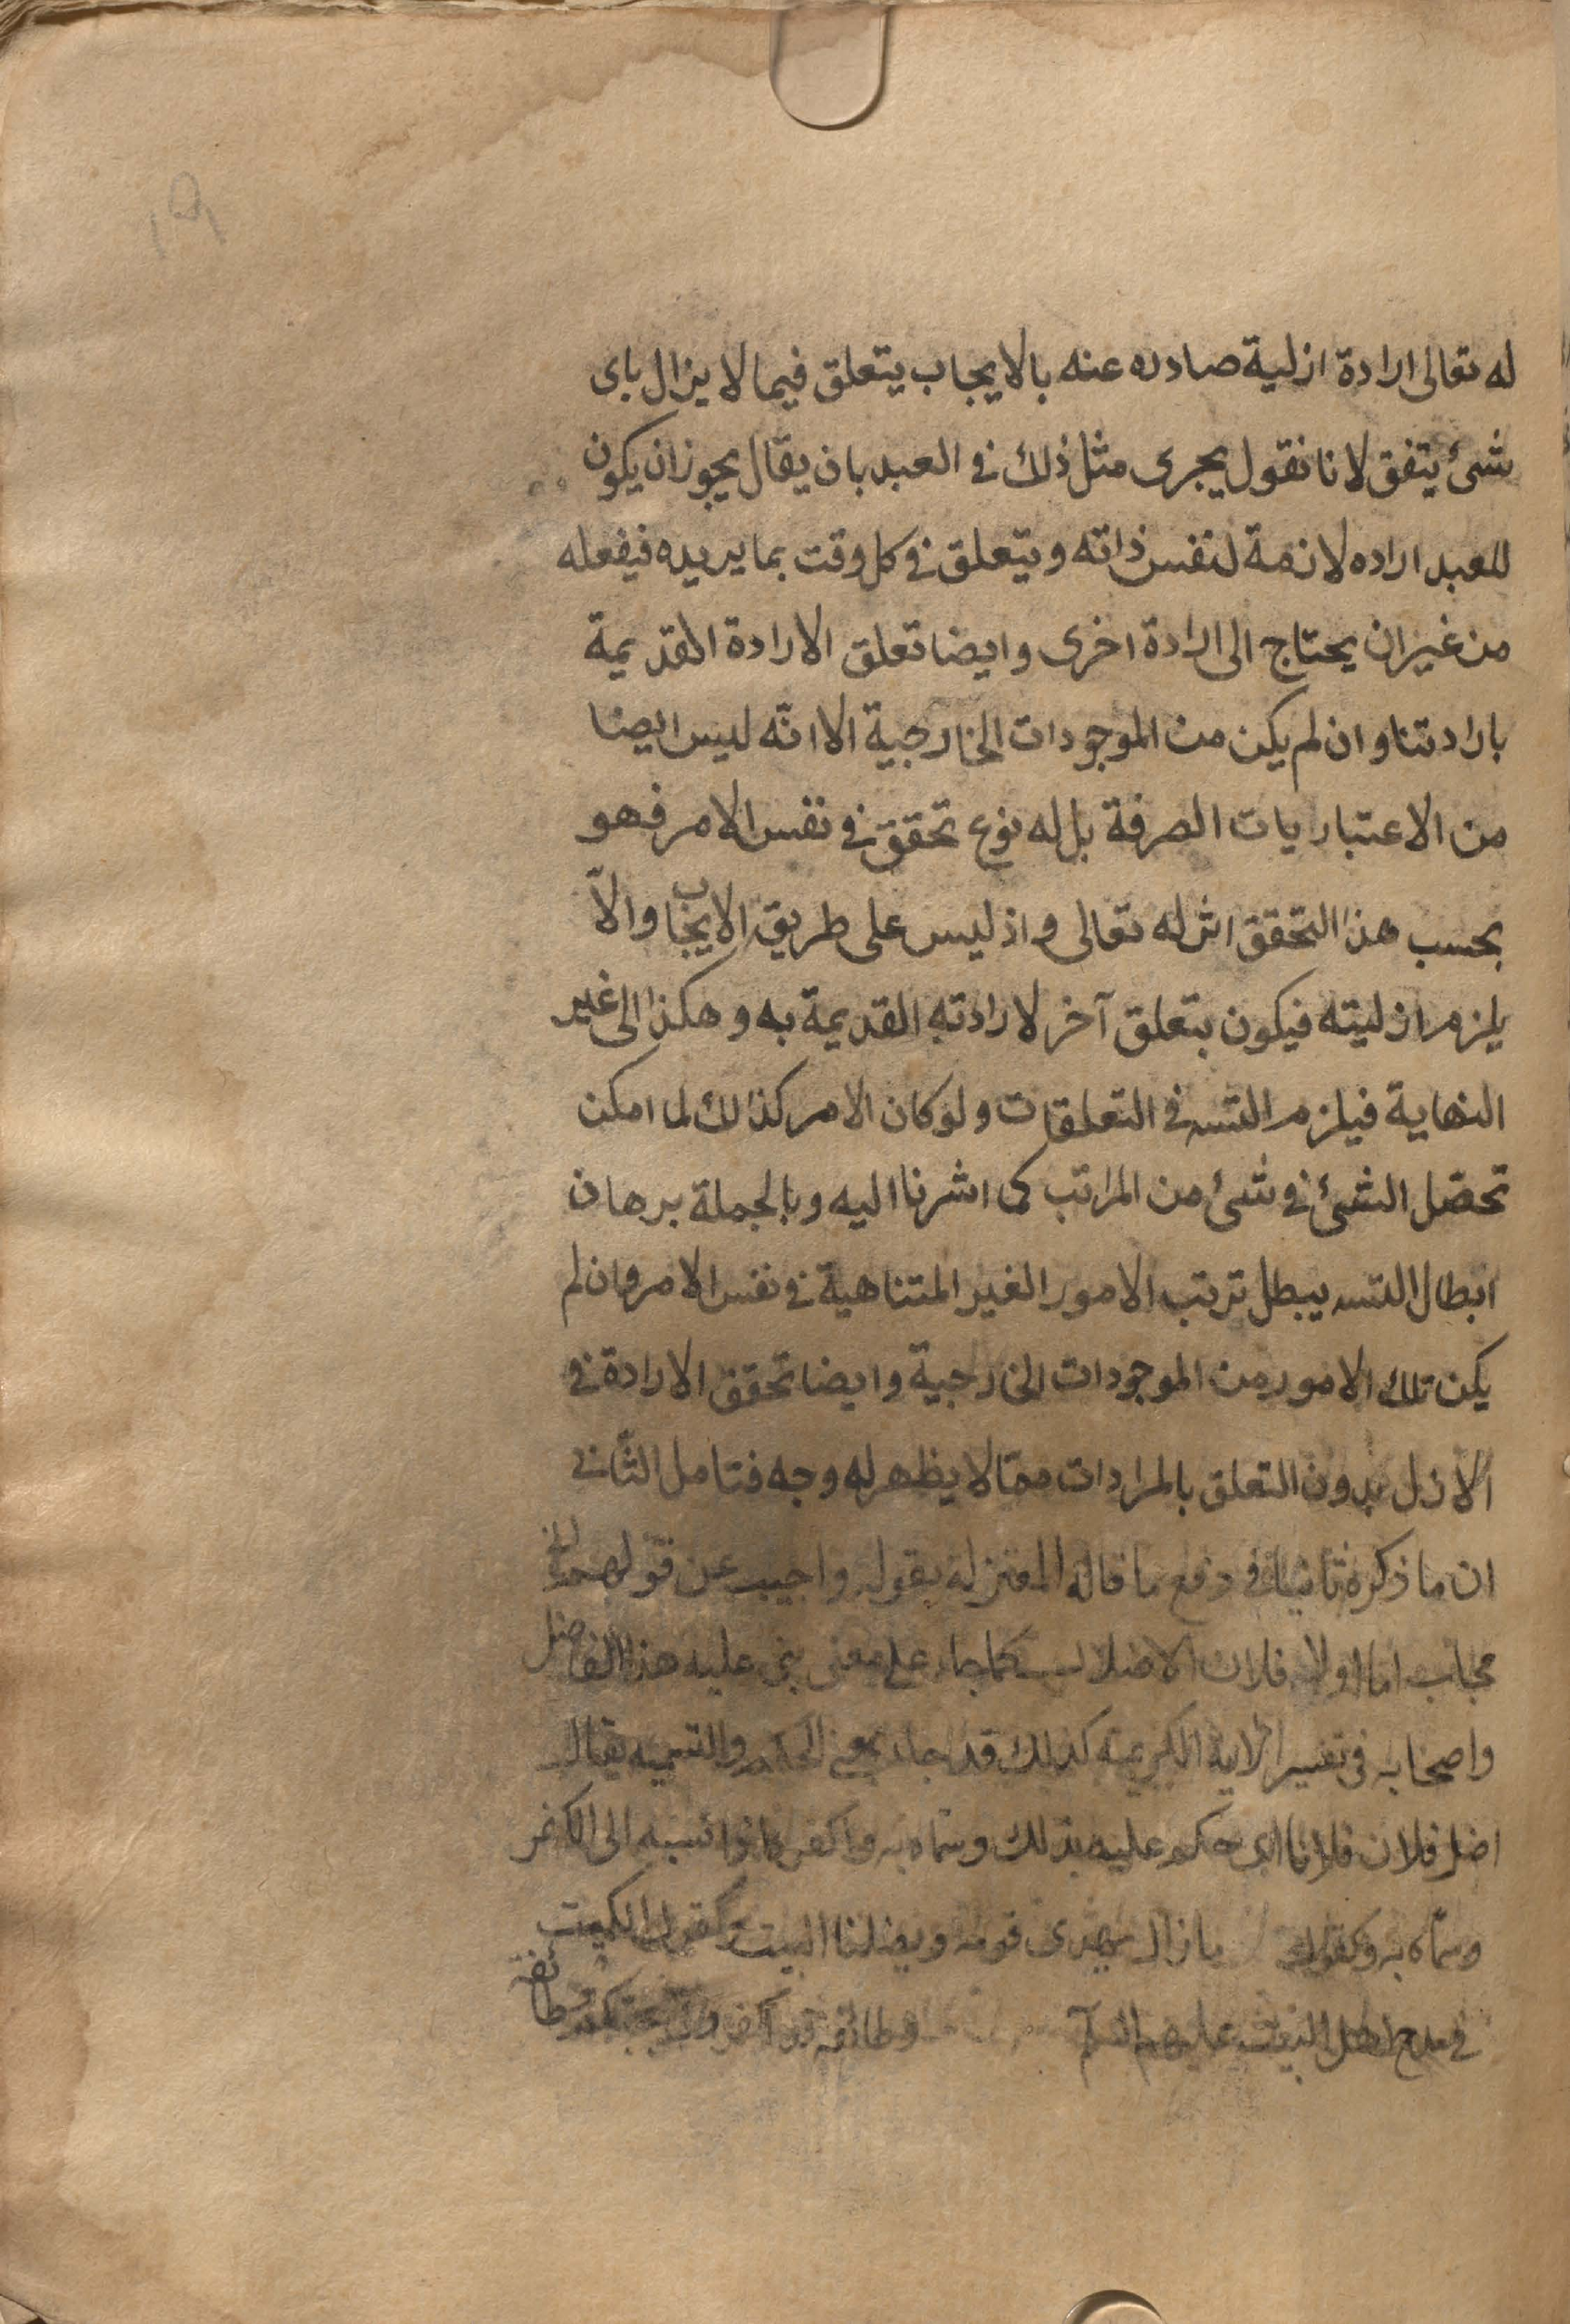 له تعالى ارادة ازلية صادره عنه بالايجاب يتعلق فيما لا يزال باى
شئ يتفق لانا نقول يجرى مثل ذلك فى العبد بان يقال يجوز ان يكون
للعبد اراده لازمة لنفس ذاته ويتعلق فى كل وقت بما يريده فيفعله
من غير ان يحتاج الى ارادة اخرى وايضا تعلق الارادة القديمة
بارادتنا وان لم يكن من الموجودات الخارجية الا انّه ليس ايضا
من الاعتباريات الصرفة بل له نوع تحقق فى نفس الامر فهو
بحسب هذا التحقق اثر له تعالى واذ ليس على طريق الايجاب والّا
يلزم ازليته فيكون بتعلق آخر لارادته القديمة به وهكذا الى غير
النهاية فيلزم التسه فى التعلقات ولو كان الامر كذالك لما امكن
تحصّل الشئ فى شئ من المراتب كما اشرنا اليه وبالجملة برهان
ابطال التسه يبطل ترتب الامور الغير المتناهية فى نفس الامر وان لم
يكن تلك الامور من الموجودات الخارجية وايضا تحقق الارادة فى
الازل بدون التعلق بالمرادات ممّا لا يظهر له وجه فتامل الثّانى
ان ما ذكره ثانيا فى دفع ما قاله المعتزلة بقوله واجيب عن قولهم الخ
مجاب اما اولا فلان الاضلال كما جاء على معنى بنى عليه هذا الفاضل
واصحابه فى تفسير الاية الكريمة كذلك قد جاء بمعنى الحكم والتسمية يقال
اضل فلان فلانا اى حكم عليه بذلك وسماه به واكفر فلانا نسبه الى الكفر
وسمّاه به وكقوله ما زال يهدى قومه ويضلنا البيت وكقول الكميت
فى مدح اهل البيت عليهم السلم وطائفة قد اكفرونى بحبكم وطائفة